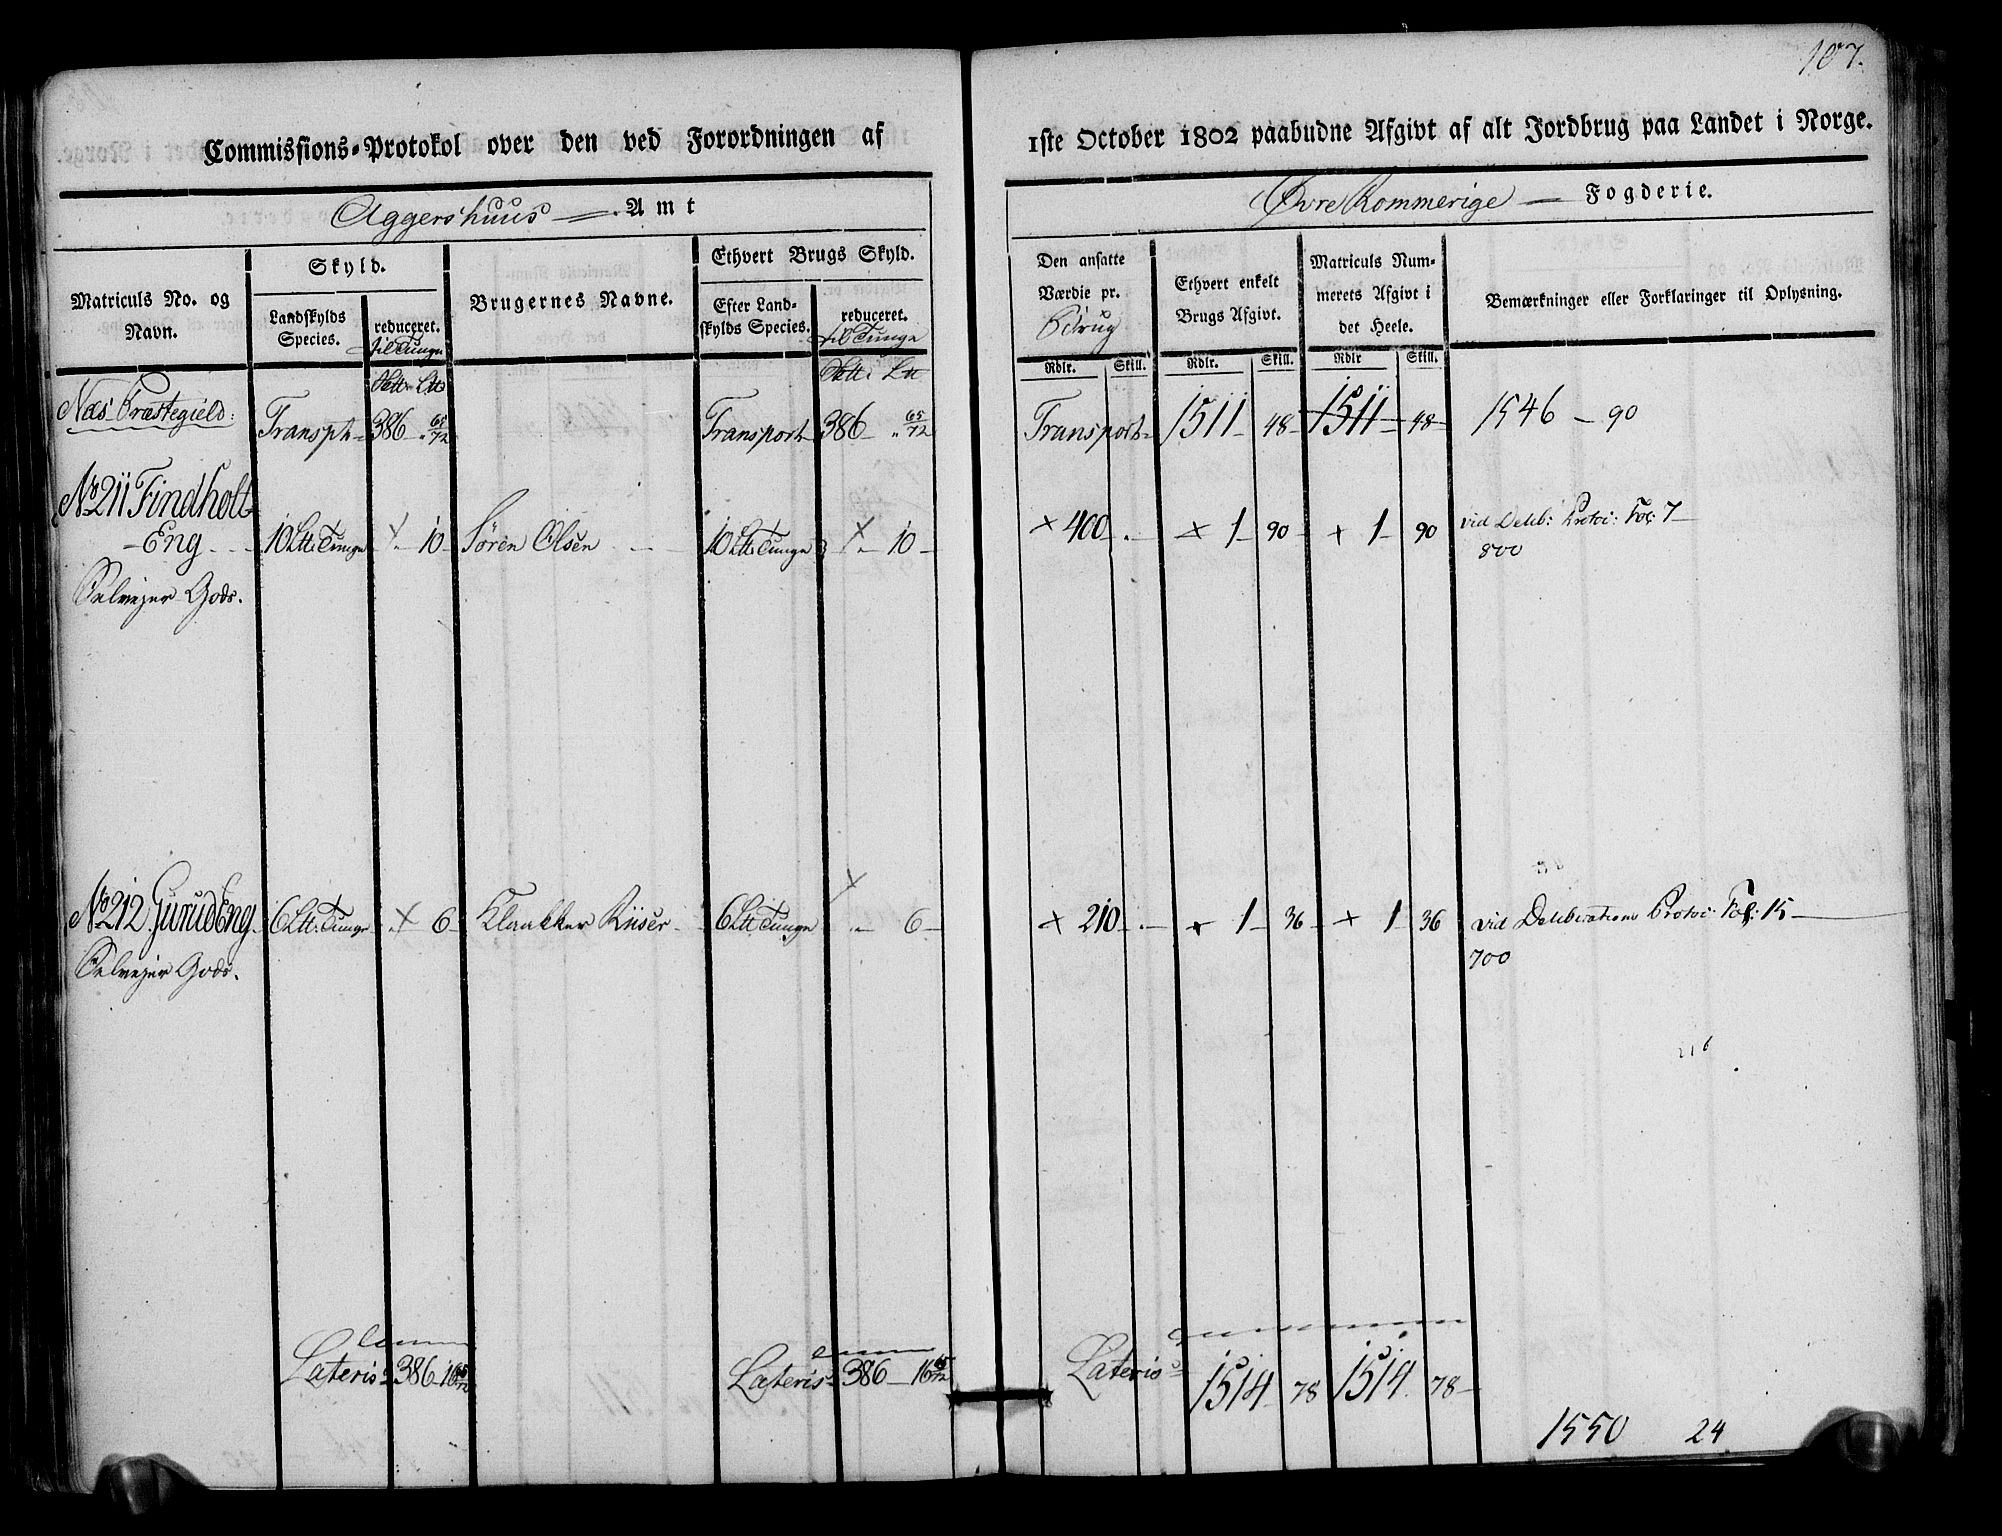 107.
Commissions-Protokol over den ved Forordningen af
1ste October 1802 paabudne Afgivt af alt Jordbrug paa Landet i Norge.
Aggershuus Amt
Øvre Rommerige Fogderie.
Matriculs No. og Navn.
Skyld.
Landskylds Species.
reduceret.
til Tunge
Brugernes Navne.
Ethvert Brugs Skyld.
Efter Land-
skylds Species.
reduceret.
til Tunge
Den ansatte
Værdie pr.
Ethvert enkelt
Brugs Afgivt.
Matriculs Num-
merets Afgivt i
det Heele.
Bemærkninger eller Forklaringer til Oplysning.
Rdlr. Skill. Rdlr. Skill. Rdlr Skill.
Næs Præstegield: Transpt 386 65/72 Transport 386 65/72 Transport 1511 48 1511 48 1546 - 90
No 211 Findholt
Eng 10 Ltt: Tunge 10 Sören Olsen 10 Ltt: Tunge 10 400 1 90 1 90 vid Delib: Protoc: Fol: 7
Selvejer Gods. 800
No 212 Gurud Eng 6 Ltt: Tunge 6 Klaukker Riiser 6 Ltt Tunge 6 210 1 36 1 36 vid Deliberations Protoc: Fol: 15
Selvejer Gods. 700
216
Lateris 386 16 65/72 Lateris 386 16 65/72 Lateris 1514 78 1514 78
1550 24